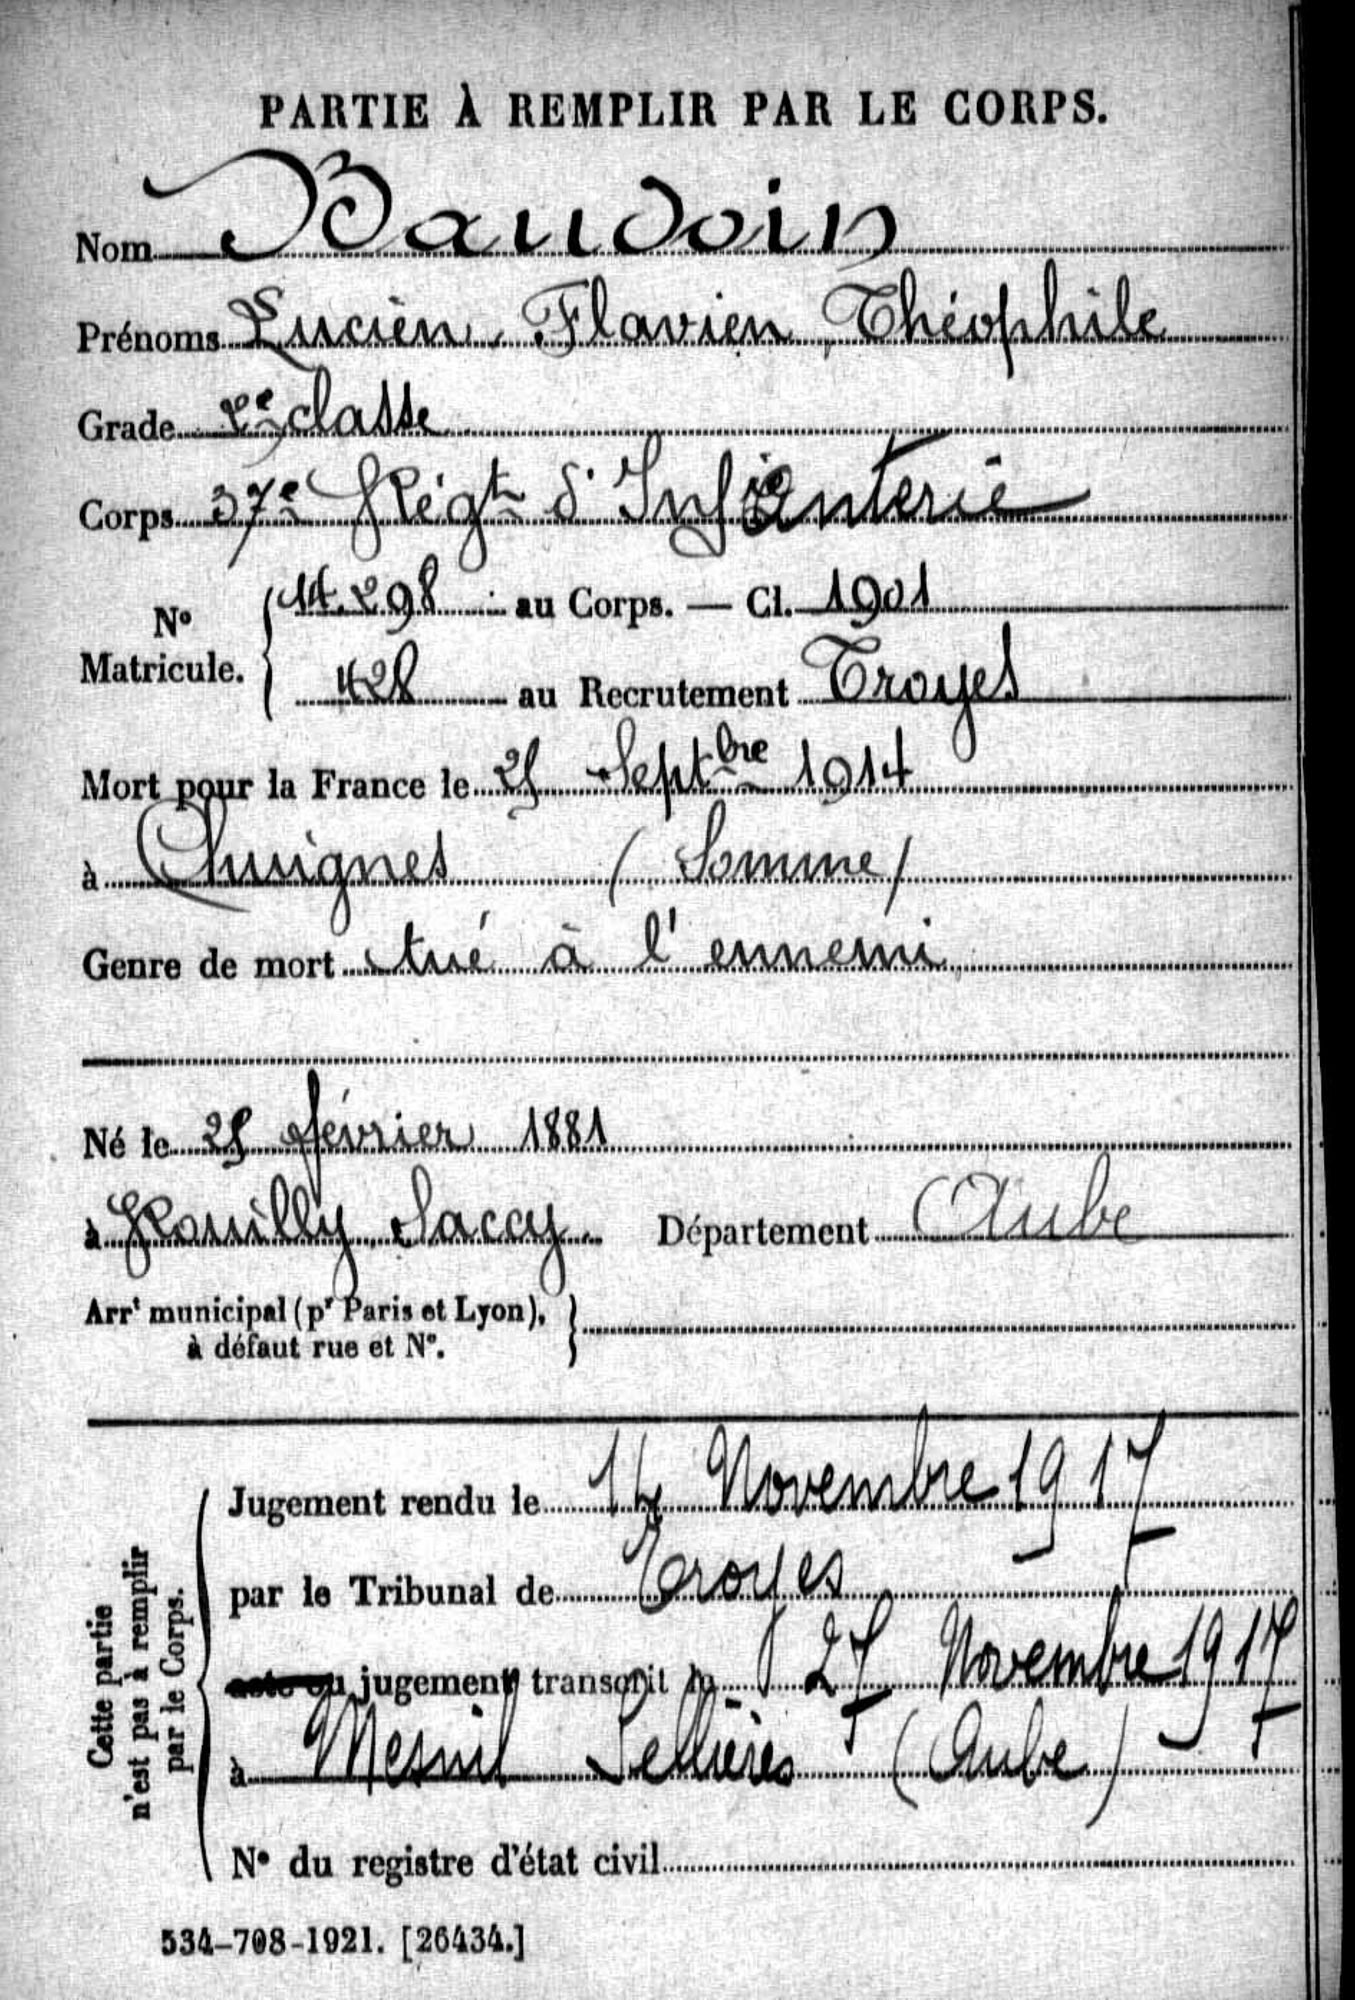 PARTIE À REMPLIR PAR LE CORPS.
Nom Baudoin
Prénoms Lucien, Flavien, Théophile
Grade 2e classe
Corps 37e Régt d'Infanterie
No Matricule. 14.298 au Corps. — Cl. 1901
428 au Recrutement Troyes
Mort pour la France le 25 Septbre 1914
à Chuignes (Somme)
Genre de mort tué à l'ennemi
Né le 25 février 1881
à Rouilly Saccy Département Aube
Arrt municipal (pr Paris et Lyon),
à défaut rue et No.
Cette partie
n'est pas à remplir
par le Corps.
Jugement rendu le 14 Novembre 1917
par le Tribunal de Troyes
acte ou jugement transcrit le 27 Novembre 1917
à Mesnil Sellières (Aube)
No du registre d'état civil
534-708-1921. [26434.]